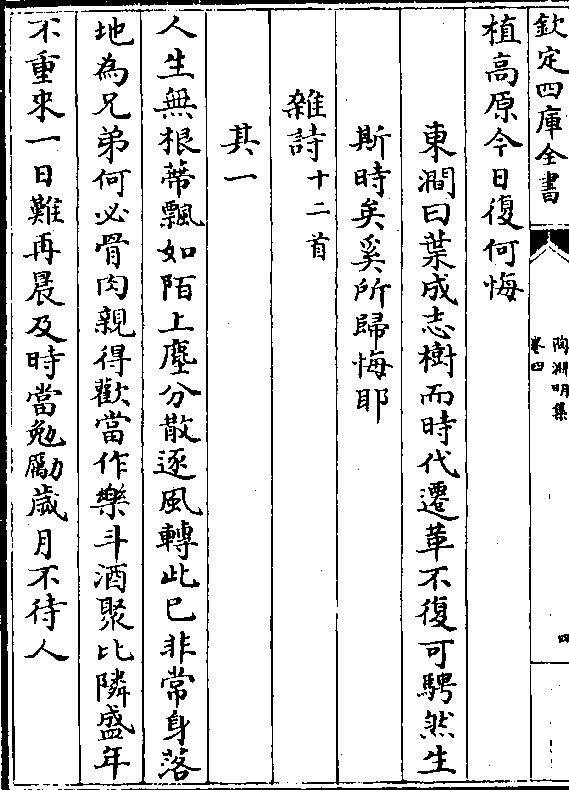 欽定四庫全書
陶淵明集
卷四
四
植高原今日復何悔
東澗曰葉成志樹而時代遷革不復可騁然生
斯時矣奚所歸悔耶
雜詩十二首
其一
人生無根蔕飄如陌上塵分散逐風轉此已非常身落
地為兄弟何必骨肉親得歡當作樂斗酒聚比隣盛年
不重來一日難再晨及時當勉勵歲月不待人